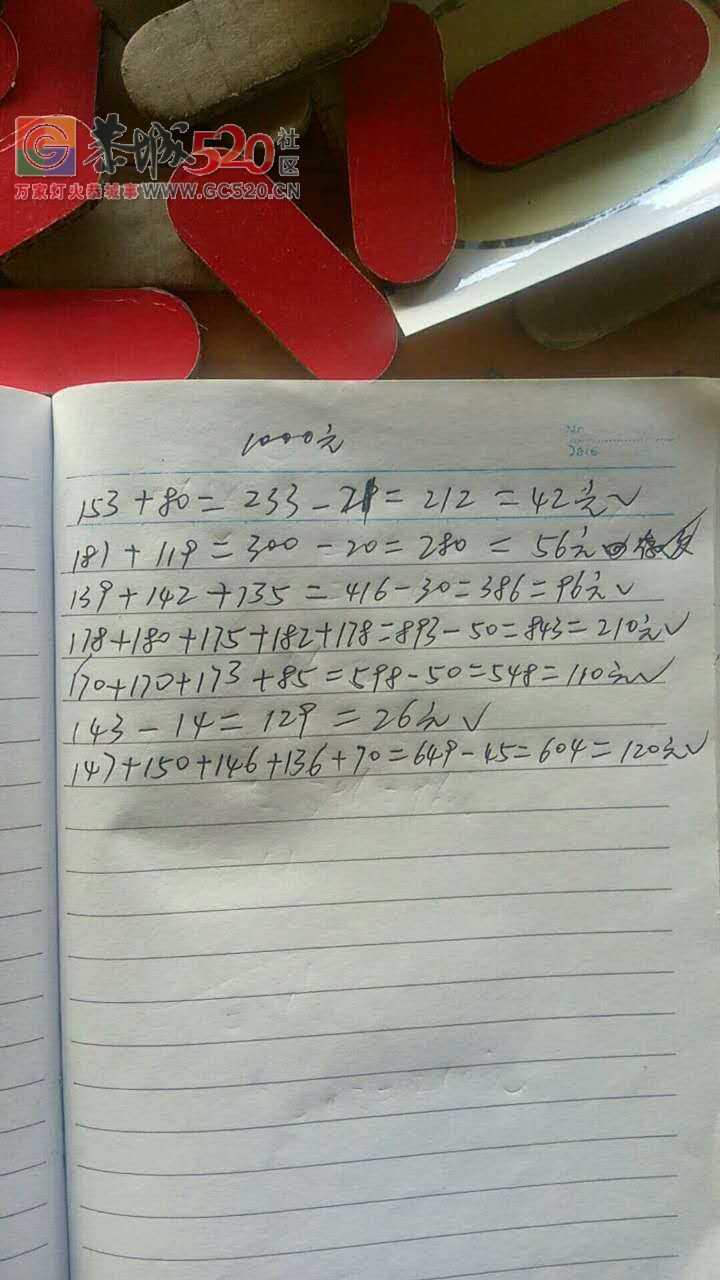 恭城520社区
万家灯火恭城事WWW.GC520.CN
1000元
No
Date
153+80=233-21=212=42元✓
181+119=300-20=280=56元
139+142+135=416-30=386=96元✓
178+180+175+182+178=893-50=843=210元✓
170+170+173+85=598-50=548=110元✓
143-14=129=26元✓
147+150+146+136+70=649-45=604=120元✓